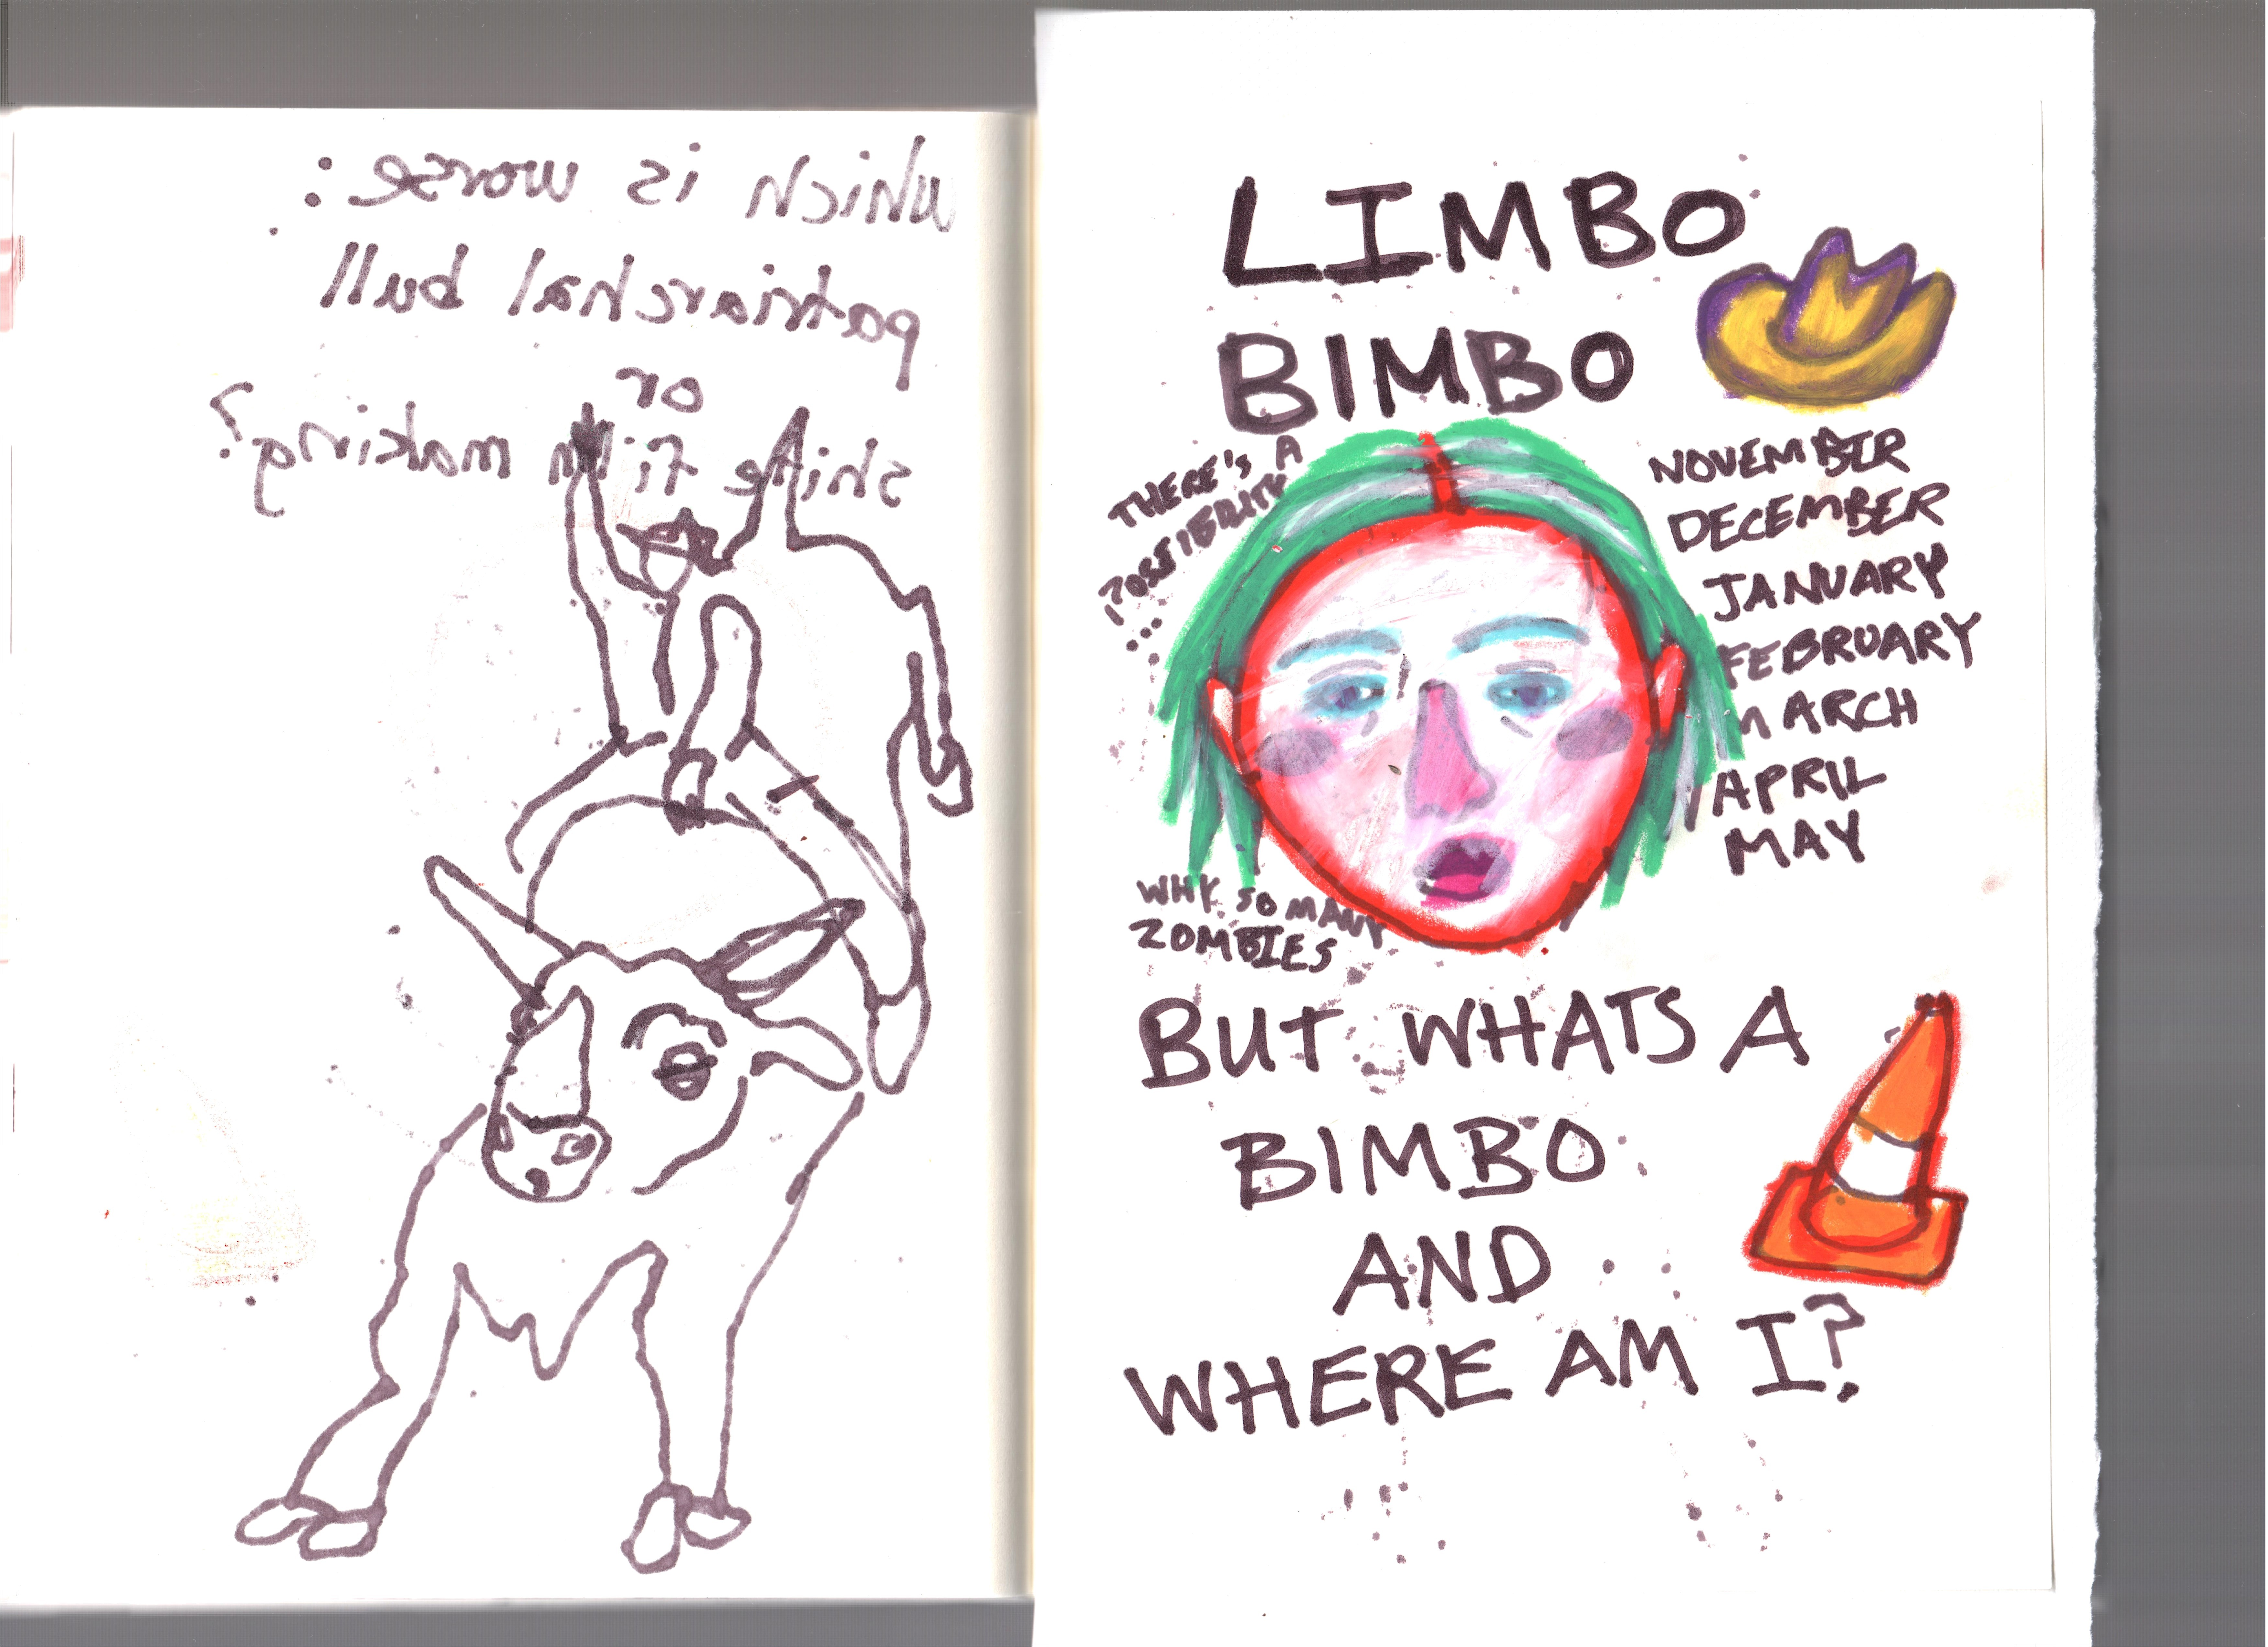 which is worse:
patriarchal bull
or
shite film making?
LIMBO
BIMBO
THERE'S A
POSSIBILITY
...
NOVEMBER
DECEMBER
JANUARY
FEBRUARY
MARCH
APRIL
MAY
WHY SO MANY
ZOMBIES
BUT WHATS A
BIMBO
AND
WHERE AM I?